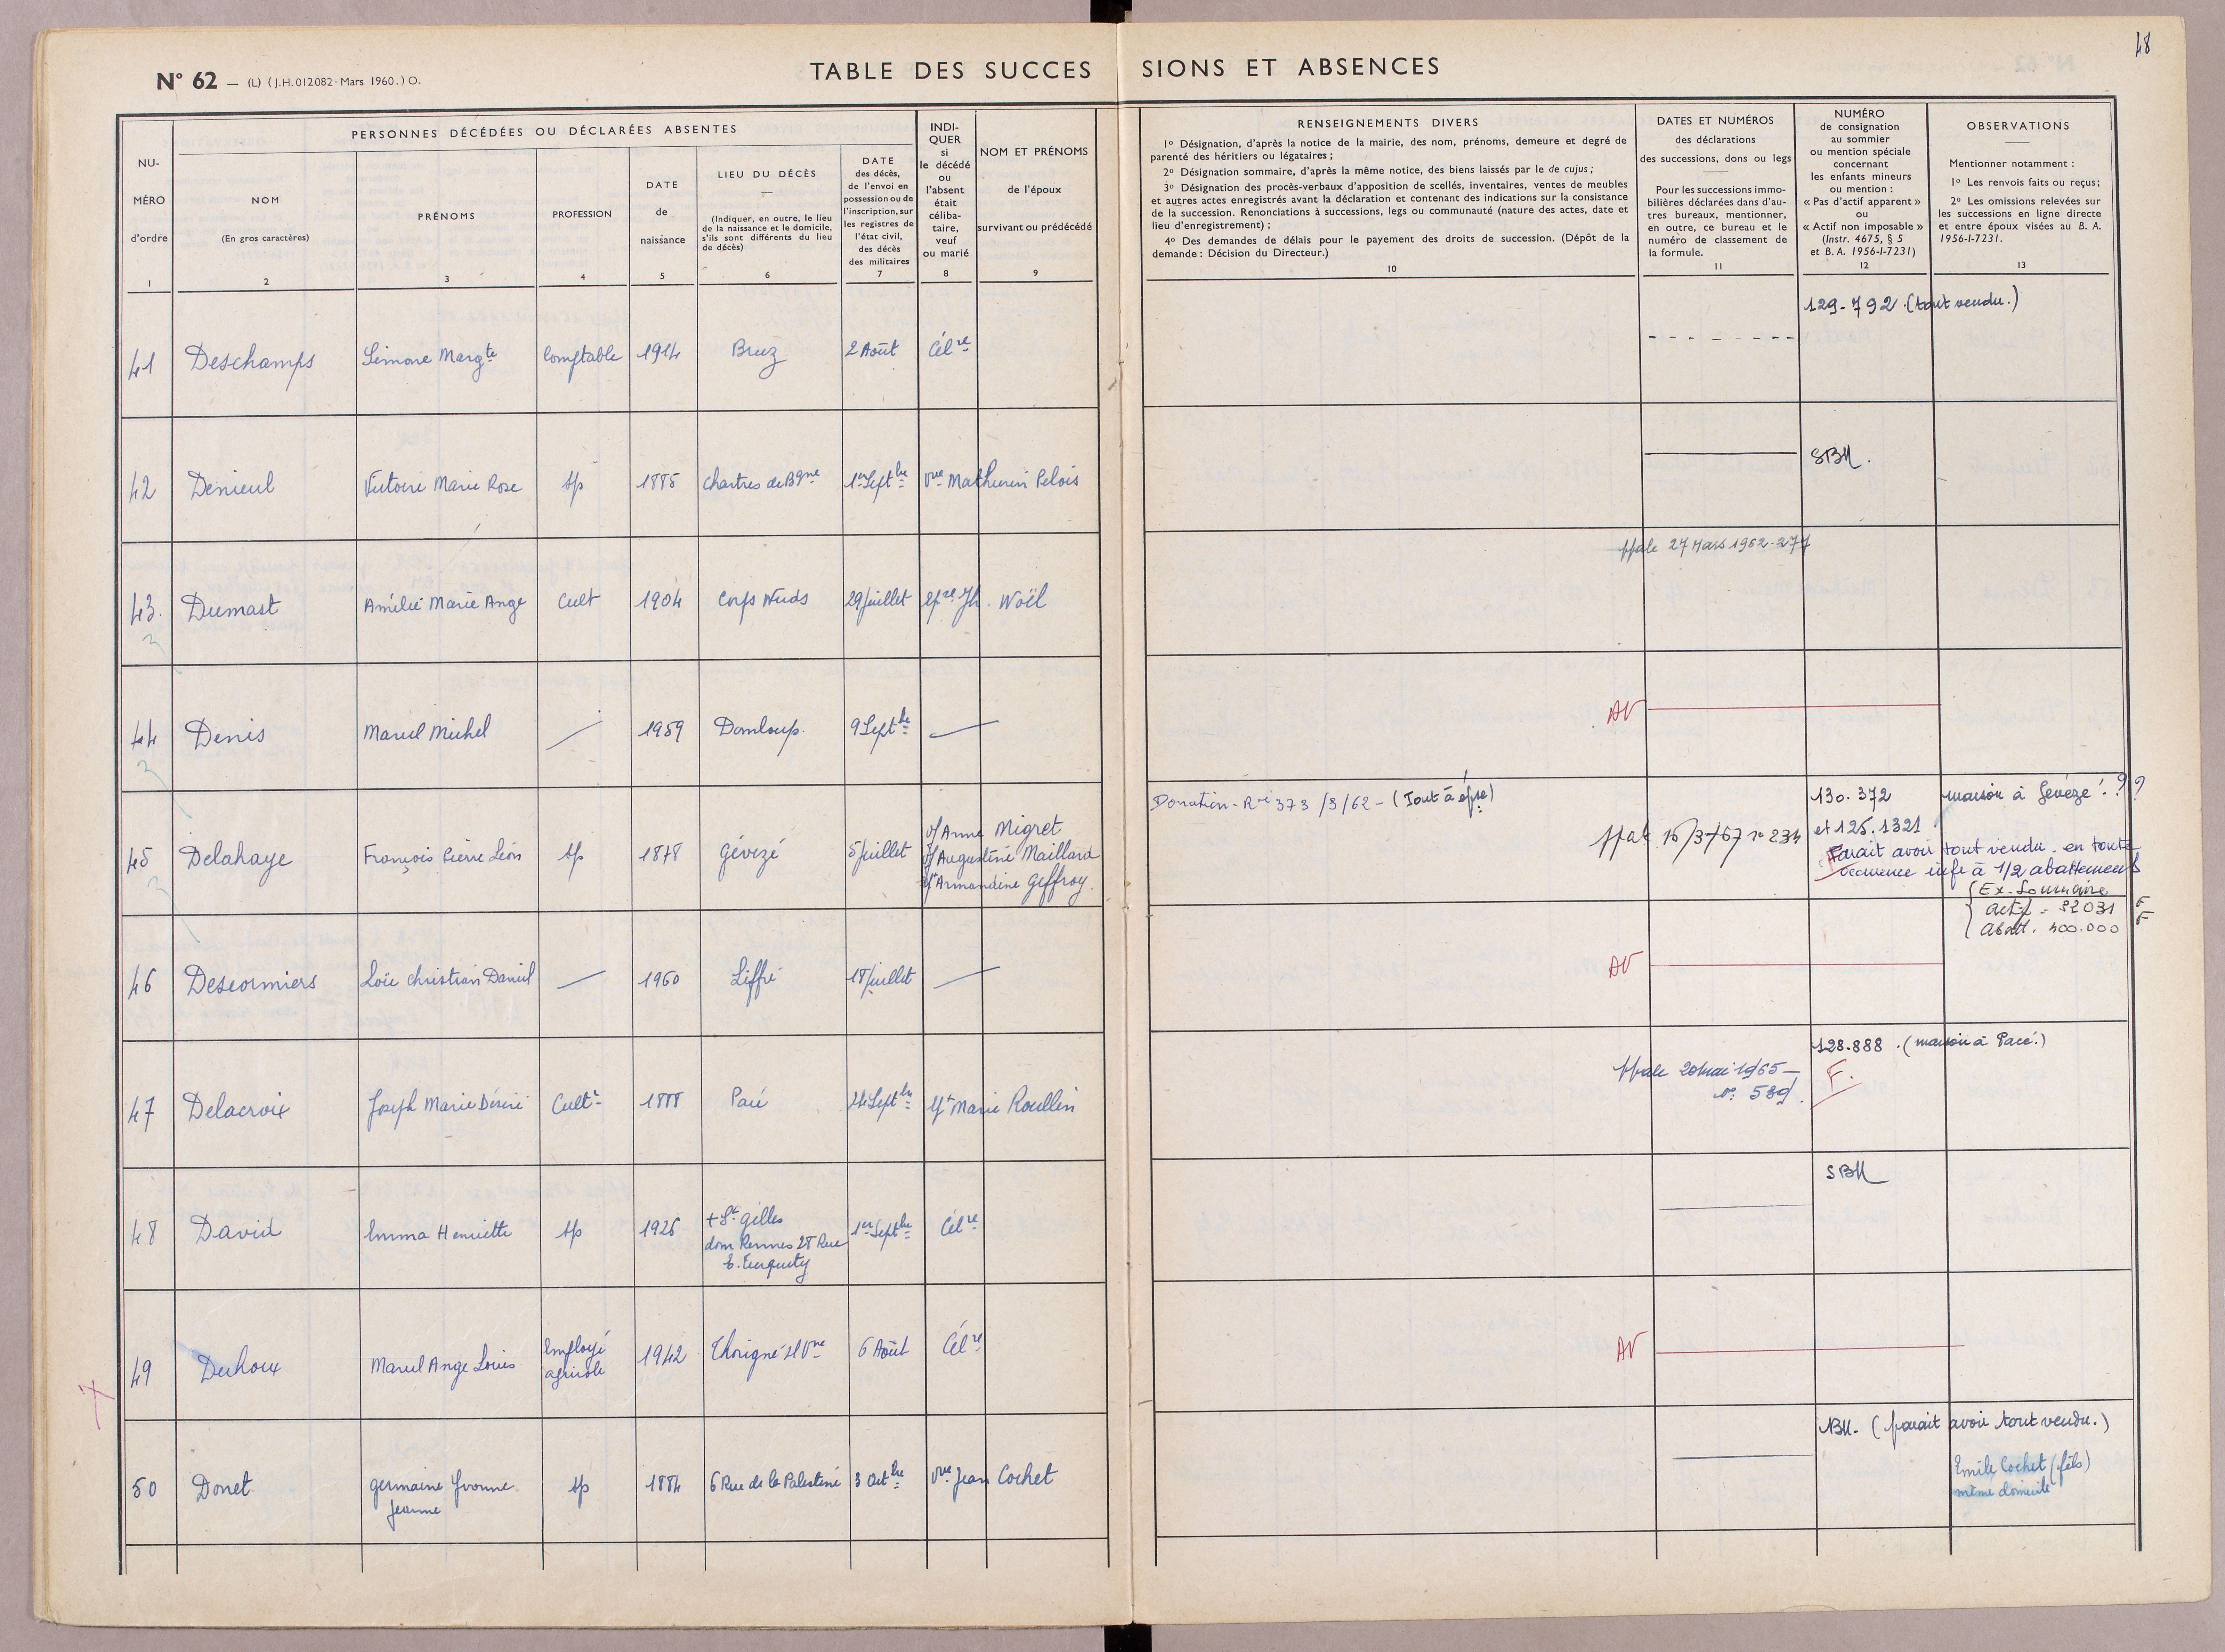 48
N° 62 — (L) (J.H. 012082-Mars 1960.) O.
TABLE DES SUCCESSIONS ET ABSENCES
NUMÉRO
d'ordre
1
PERSONNES DÉCÉDÉES OU DÉCLARÉES ABSENTES
NOM
(En gros caractères)
2
PRÉNOMS
3
PROFESSION
4
DATE
de
naissance
5
LIEU DU DÉCÈS
(Indiquer, en outre, le lieu
de la naissance et le domicile,
s'ils sont différents du lieu
de décès)
6
DATE
des décès,
de l'envoi en
possession ou de
l'inscription, sur
les registres de
l'état civil,
des décès
des militaires
7
INDI-
QUER
si
le décédé
ou
l'absent
était
céliba-
taire,
veuf
ou marié
8
NOM ET PRÉNOMS
de l'époux
survivant ou prédécédé
9
RENSEIGNEMENTS DIVERS
1° Désignation, d'après la notice de la mairie, des nom, prénoms, demeure et degré de
parenté des héritiers ou légataires ;
2° Désignation sommaire, d'après la même notice, des biens laissés par le de cujus ;
3° Désignation des procès-verbaux d'apposition de scellés, inventaires, ventes de meubles
et autres actes enregistrés avant la déclaration et contenant des indications sur la consistance
de la succession. Renonciations à successions, legs ou communauté (nature des actes, date et
lieu d'enregistrement) ;
4° Des demandes de délais pour le payement des droits de succession. (Dépôt de la
demande : Décision du Directeur.)
10
DATES ET NUMÉROS
des déclarations
des successions, dons ou legs
Pour les successions immo-
bilières déclarées dans d'au-
tres bureaux, mentionner,
en outre, ce bureau et le
numéro de classement de
la formule.
11
NUMÉRO
de consignation
au sommier
ou mention spéciale
concernant
les enfants mineurs
ou mention :
« Pas d'actif apparent »
ou
« Actif non imposable »
(Instr. 4675, § 5
et B. A. 1956-I-7231)
12
OBSERVATIONS
Mentionner notamment :
1° Les renvois faits ou reçus ;
2° Les omissions relevées sur
les successions en ligne directe
et entre époux visées au B. A.
1956-I-7231.
13
41 Deschamps Simone Margte Comptable 1914 Bruz 2 Août Célre 129-792 (tout vendu.)
42 Denieul Victoire Marie Rose sp 1885 Chartres de Bgne 1er Septbre Vve Mathurin Pelois SBM.
43. Dumast Amélie Marie Ange Cult 1904 Corps Nuds 29 Juillet Noël 27 Mars 1962-277
44 Denis Marcel Michel 1959 Domloup. 9 Septbre AV
45 Delahaye François Pierre Léon sp 1878 Gévezé 5 Juillet
V/ Anne Migret
V/ Augustine Maillard
Armandine Geffroy.
373 /3/62 - (Tout à épse)
16/3/67 n° 234
130. 372 maison à Gevezé ! ??
et 125. 1321
Parait avoir tout vendu. en toute
occurence infe à 1/2 abattement
Ex-Sommaire
actif = 32031 F
Abatt. 400.000 F
46 Desormiers Loïc Christian Daniel 1960 Liffré 18 Juillet AV
47 Delacroix Joseph Marie Désiré Cultr 1888 Pacé 24 Septbre Marie Roullin
20 Mai 1965 -
n° 589.
128.888. (maison à Pacé.)
F.
48 David Emma Henriette sp 1926
+ St. Gilles
dom Rennes 28 Rue
E. Turquety
1er Septbre Célre SBM
49 Duhoux Marcel Ange Louis
Employé
agricole
1942 Thorigné s/Vne 6 Août Célre AV
50 Donet
Germaine Yvonne
Jeanne
sp 1884 6 Rue de la Palestine 3 Octbre Vve Jean Cochet
(parait avoir tout vendu.)
Emile Cochet (fils)
même domicile